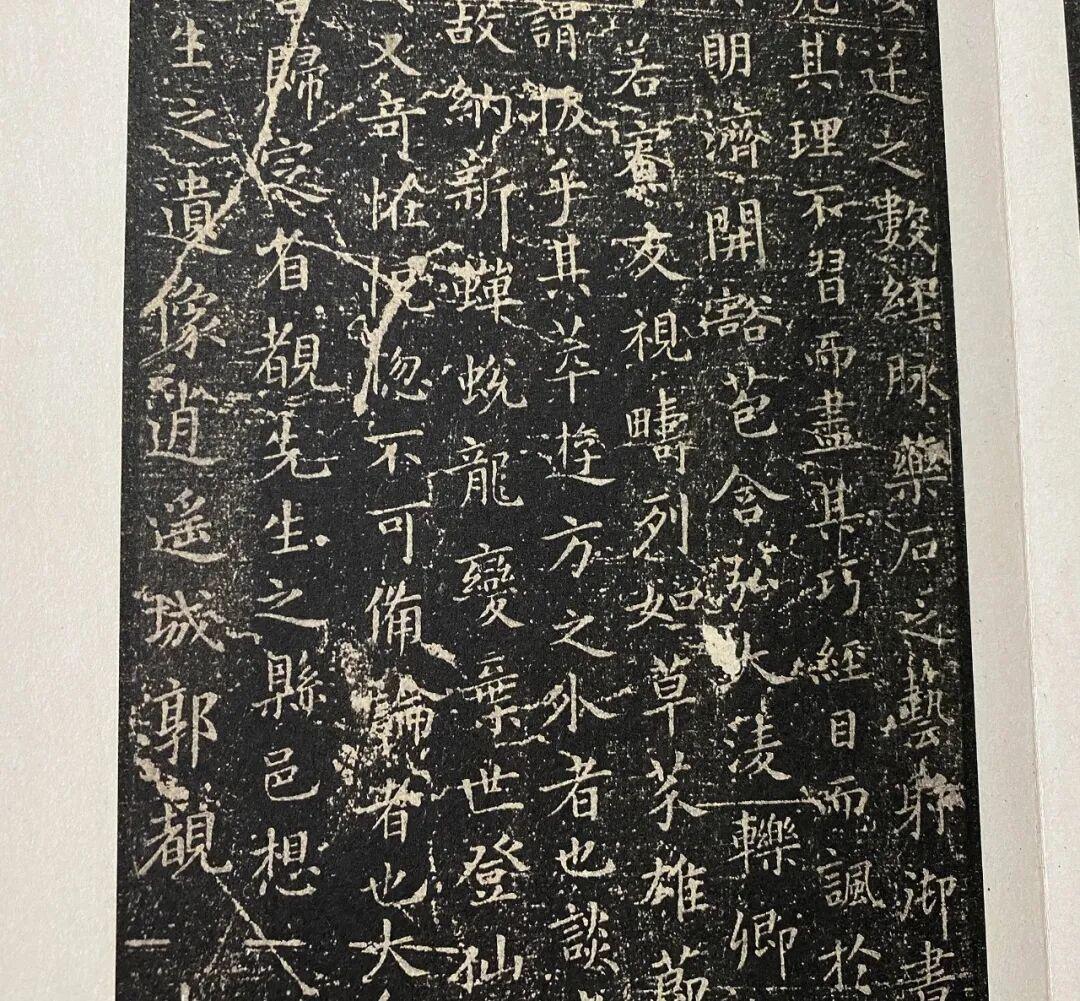 逆之數經脉藥石之藝射御書
其理不習而盡其巧經日而諷於
明濟開豁苞含弘大淩轢卿
若寮友視疇列如草芥雄節
謂拔乎其萃遊方之外者也談
故納新蟬蛻龍變棄世登仙
又奇恠怳惚不可備論者也大
歸定省覩先生之縣邑想
生之遺像逍遙城郭覩